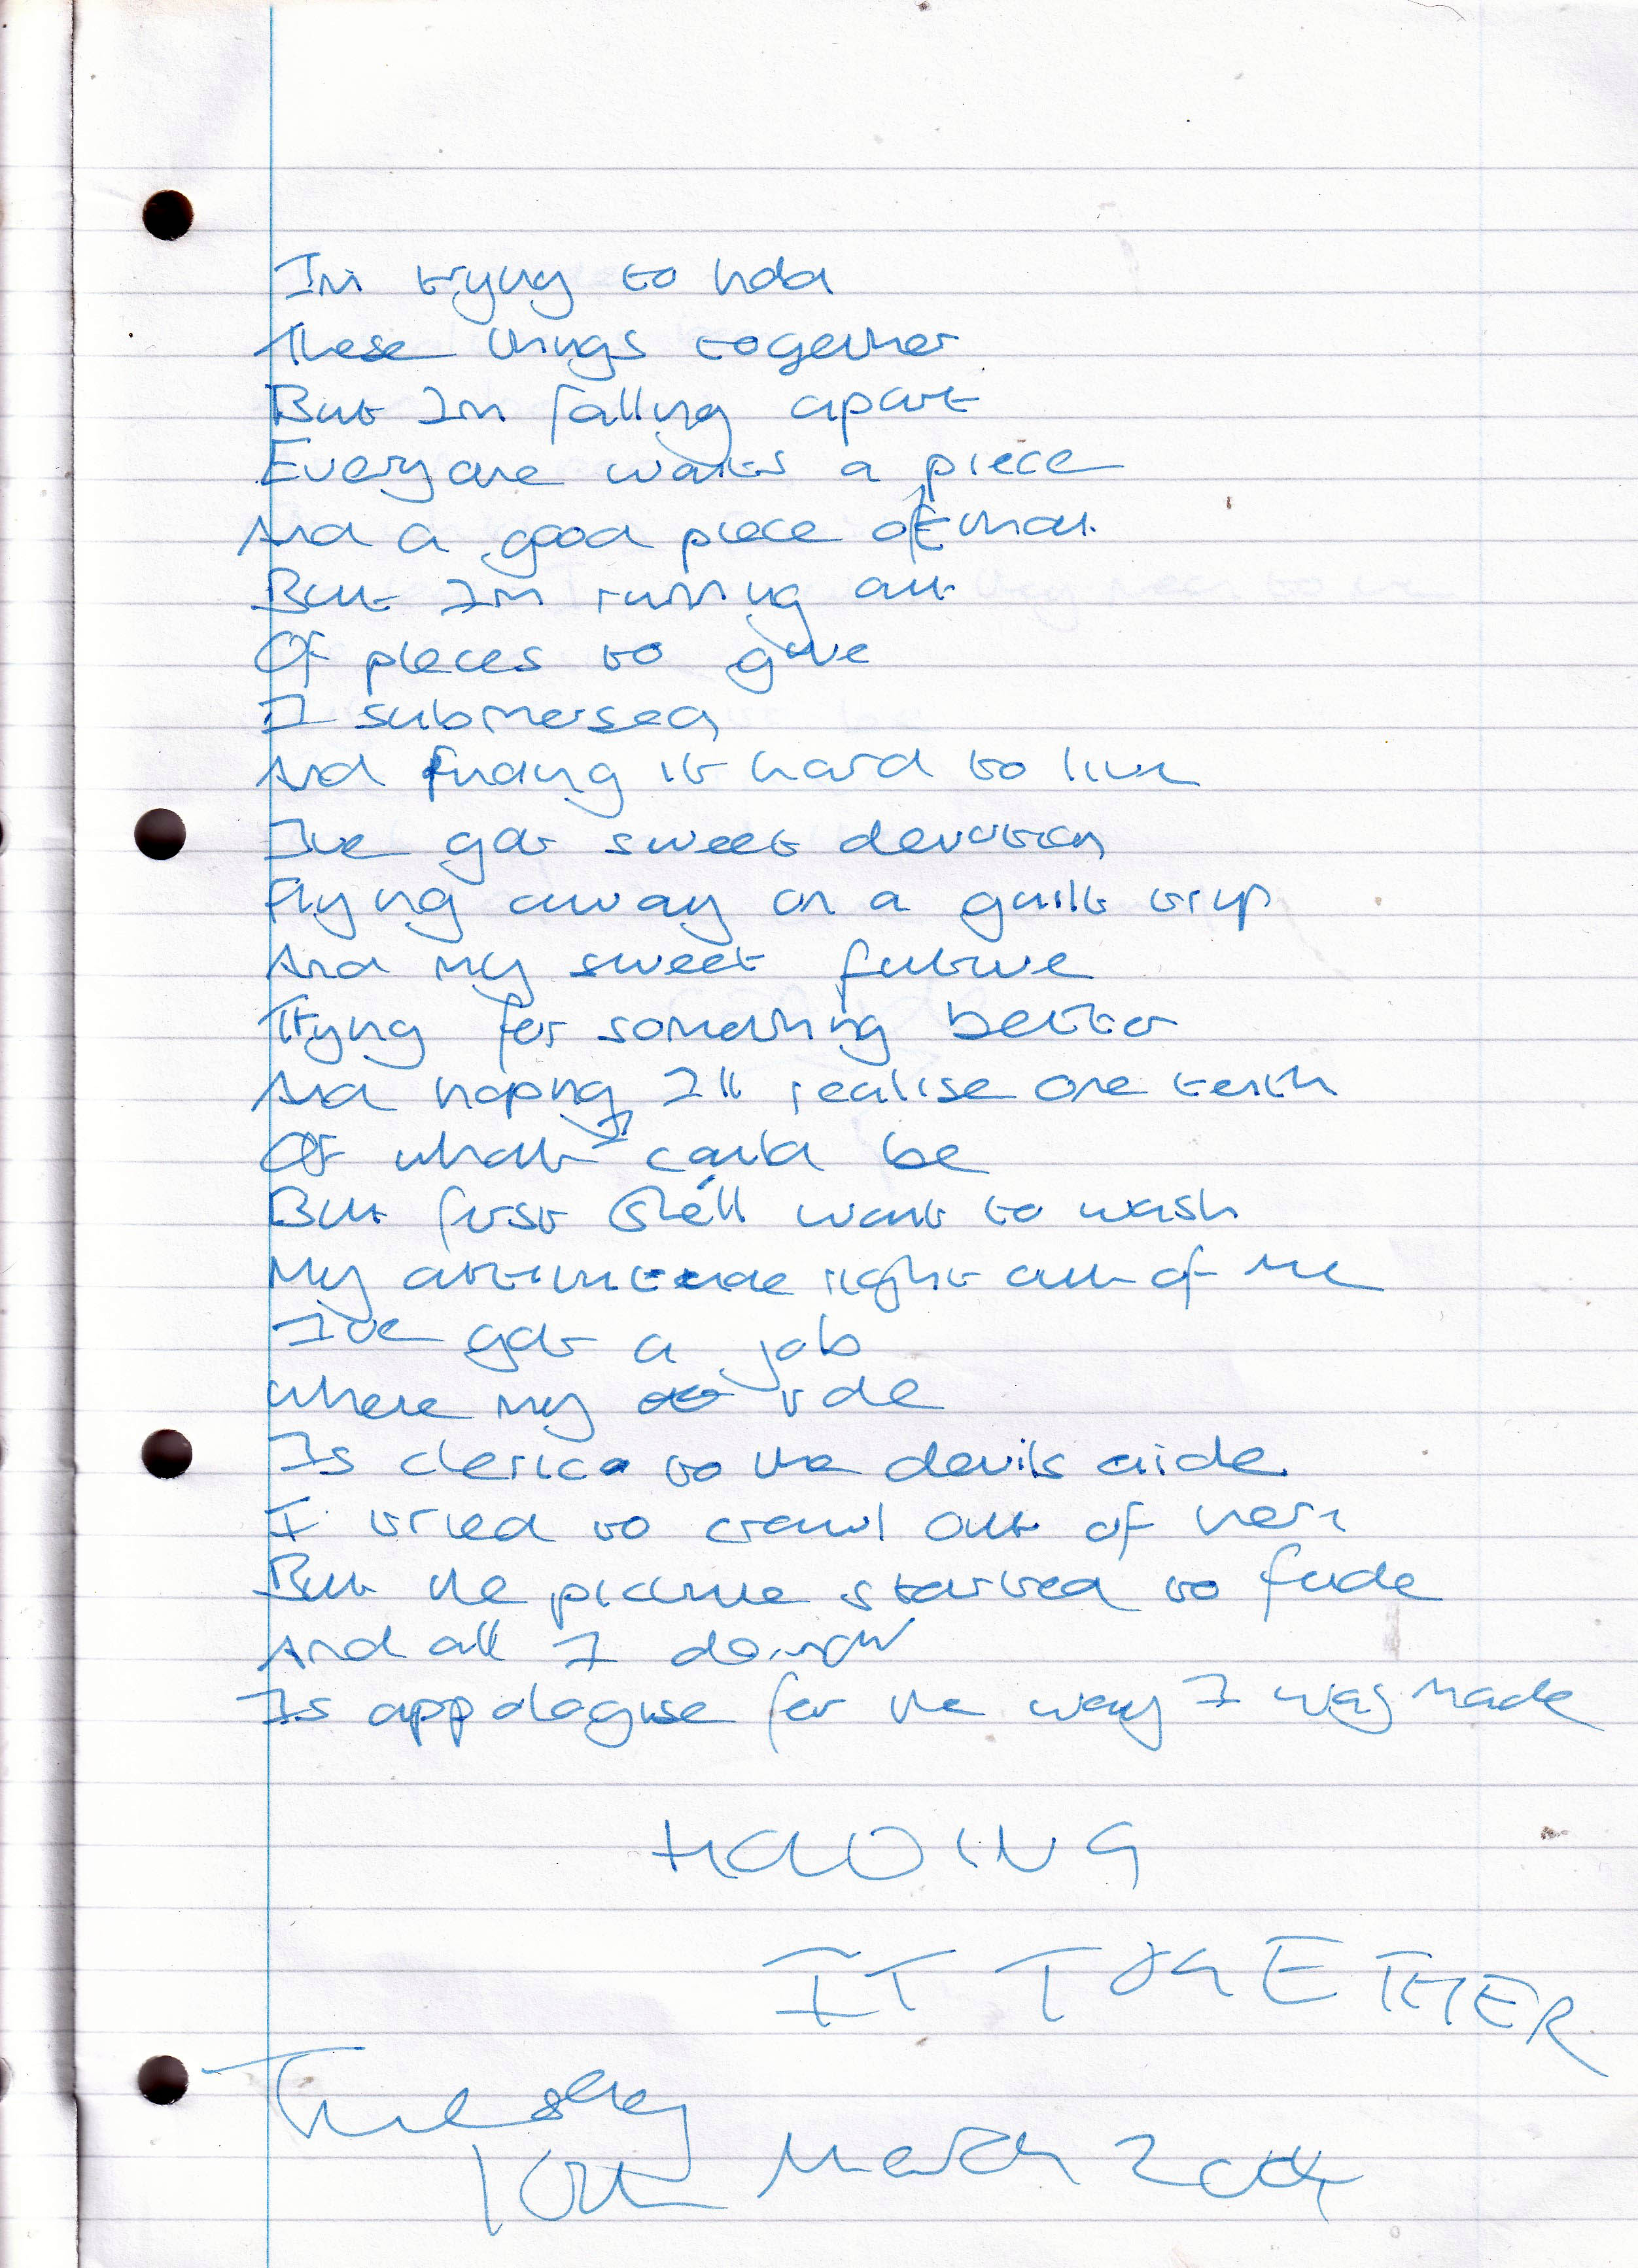 Im trying to hold
These things together
But Im falling apart
Everyone wants a piece
And a good piece of that
But Im running out
Of pieces to give
I submersed
And finding it hard to live
Ive got sweet devotion
Flying away on a guilt trip
And my sweet future
Trying for something better
And hoping Ill realise one tenth
Of what I could be
But first She'll want to wash
My attitude right out of me
I've got a job
Where my role
Is clerical to the devils aide
I tried to crawl out of here
But the picture started to fade
And all I do now
Is appologise for the way I was made
HOLDING
IT TOGETHER
Tuesday
10th March 2004